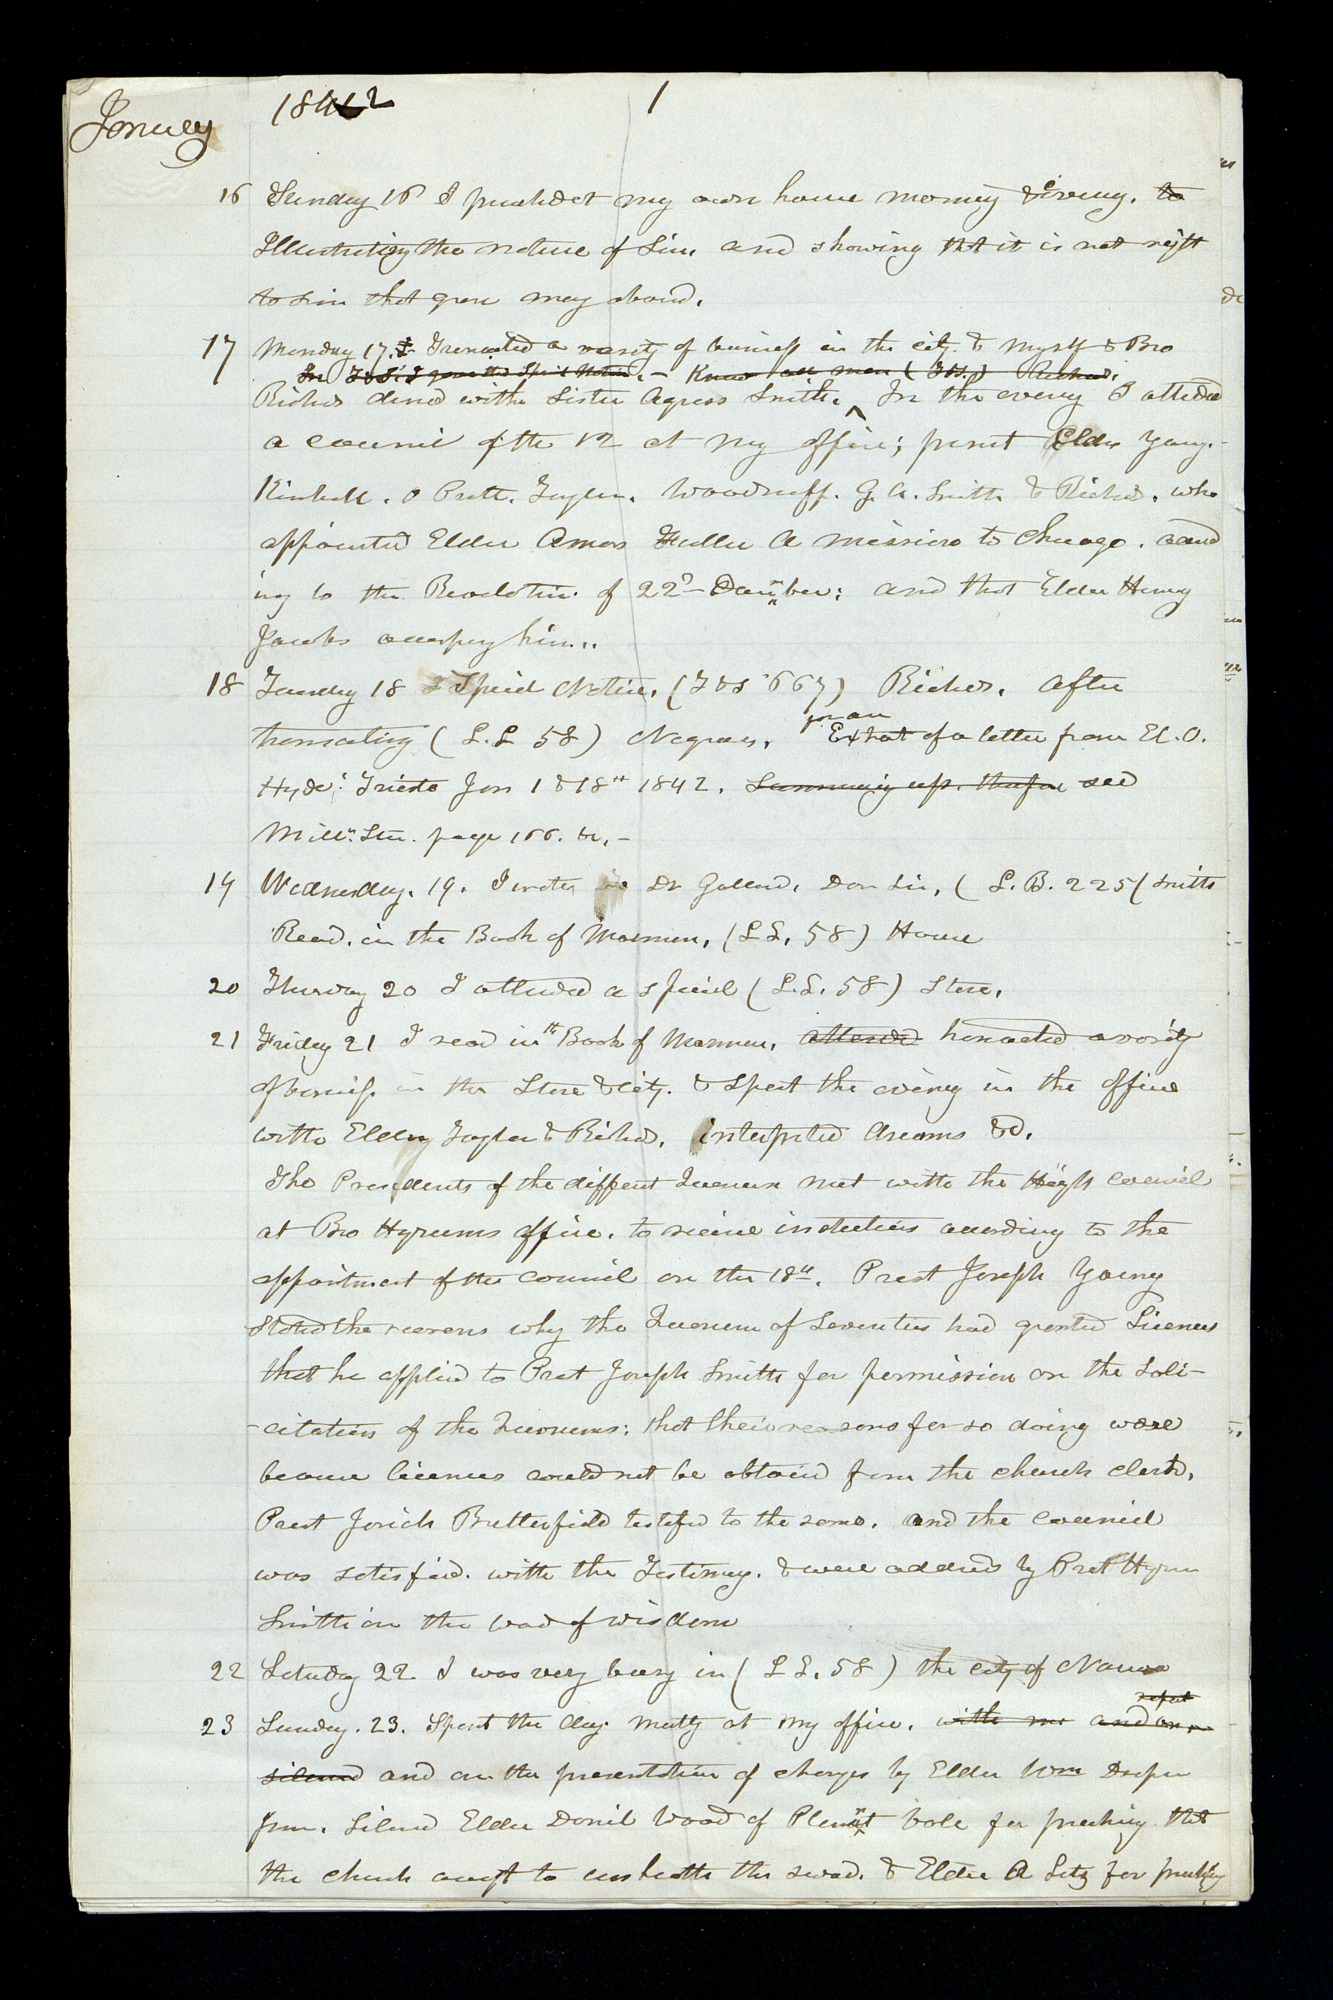 January 1842 1
16 Sunday 16 I preached at my own house morning & evening, to
Illustrating the nature of Sin, and showing that it is not right
to sin that grace may abound.
17 Monday 17. I Transacted a variety of business in the city. & myself & Bro
I gave the Special Notice. – Know all men (T&S.) Richards.
Richards dined with Sister Agness Smith. ^ In the evening I attended
a council of the 12 at my office; present Elders Young.
Kimball. O Pratt. Taylor. Woodruff. G. A. Smith & Richards, who
appointed Elder Amos Fuller a mission to Chicago. accord
ing to the Revelation of 22d December; and that Elder Henry
Jacobs accompany him..
18 Tuesday 18 Special Notice, (T&S 667) Richards. After
transacting (L.L 58) Negroes, for an Extract of a letter from El. O.
Hyde: Trieste Jan 1 & 18th 1842. Summing up. therefore see
Mill: Star. page 166. &c. –
19 Wednesday. 19. I wrote to Dr Galland. Dear Sir, (L.B. 225) Smith
Read. in the Book of Mormon, (L.L. 58) House
20 Thursday 20 I attended a special (L.L. 58) Store.
21 Friday 21 I read in th Book of Mormon, attended transacted a variety
of business in the Store & city. & spent the evening in the office
with Elders Taylor & Richards, interpreted dreams &c.
The Presidents of the different Quorums met with the High council
at Bro Hyrums office. to receive instructions according to the
appointment of the council on the 18th. Prest Joseph Young
Stated the reasons why the Quorum of Seventies had granted Licences
that he applied to Prest Joseph Smith for permission on the soli-
-citation of the Quorums; that their reasons for so doing were
because licences could not be obtained from the church clerk.
Prest Josiah Butterfield testified to the same. and the council
was satisfied. with the Testimony. & were addressed by Prest Hyrum
Smith on the word of wisdom
22 Saturday 22 I was very busy in (L L. 58) the city of Nauvoo
23 Sunday. 23. Spent the day mostly at my office. with me and on
silenced and on the presentation of charges by Elder Wm Draper
Junr. Silenced Elder Daniel Wood of Pleasant Vale for preaching that
the church ought to unsheath the sword. & Elder A Litz for preaching